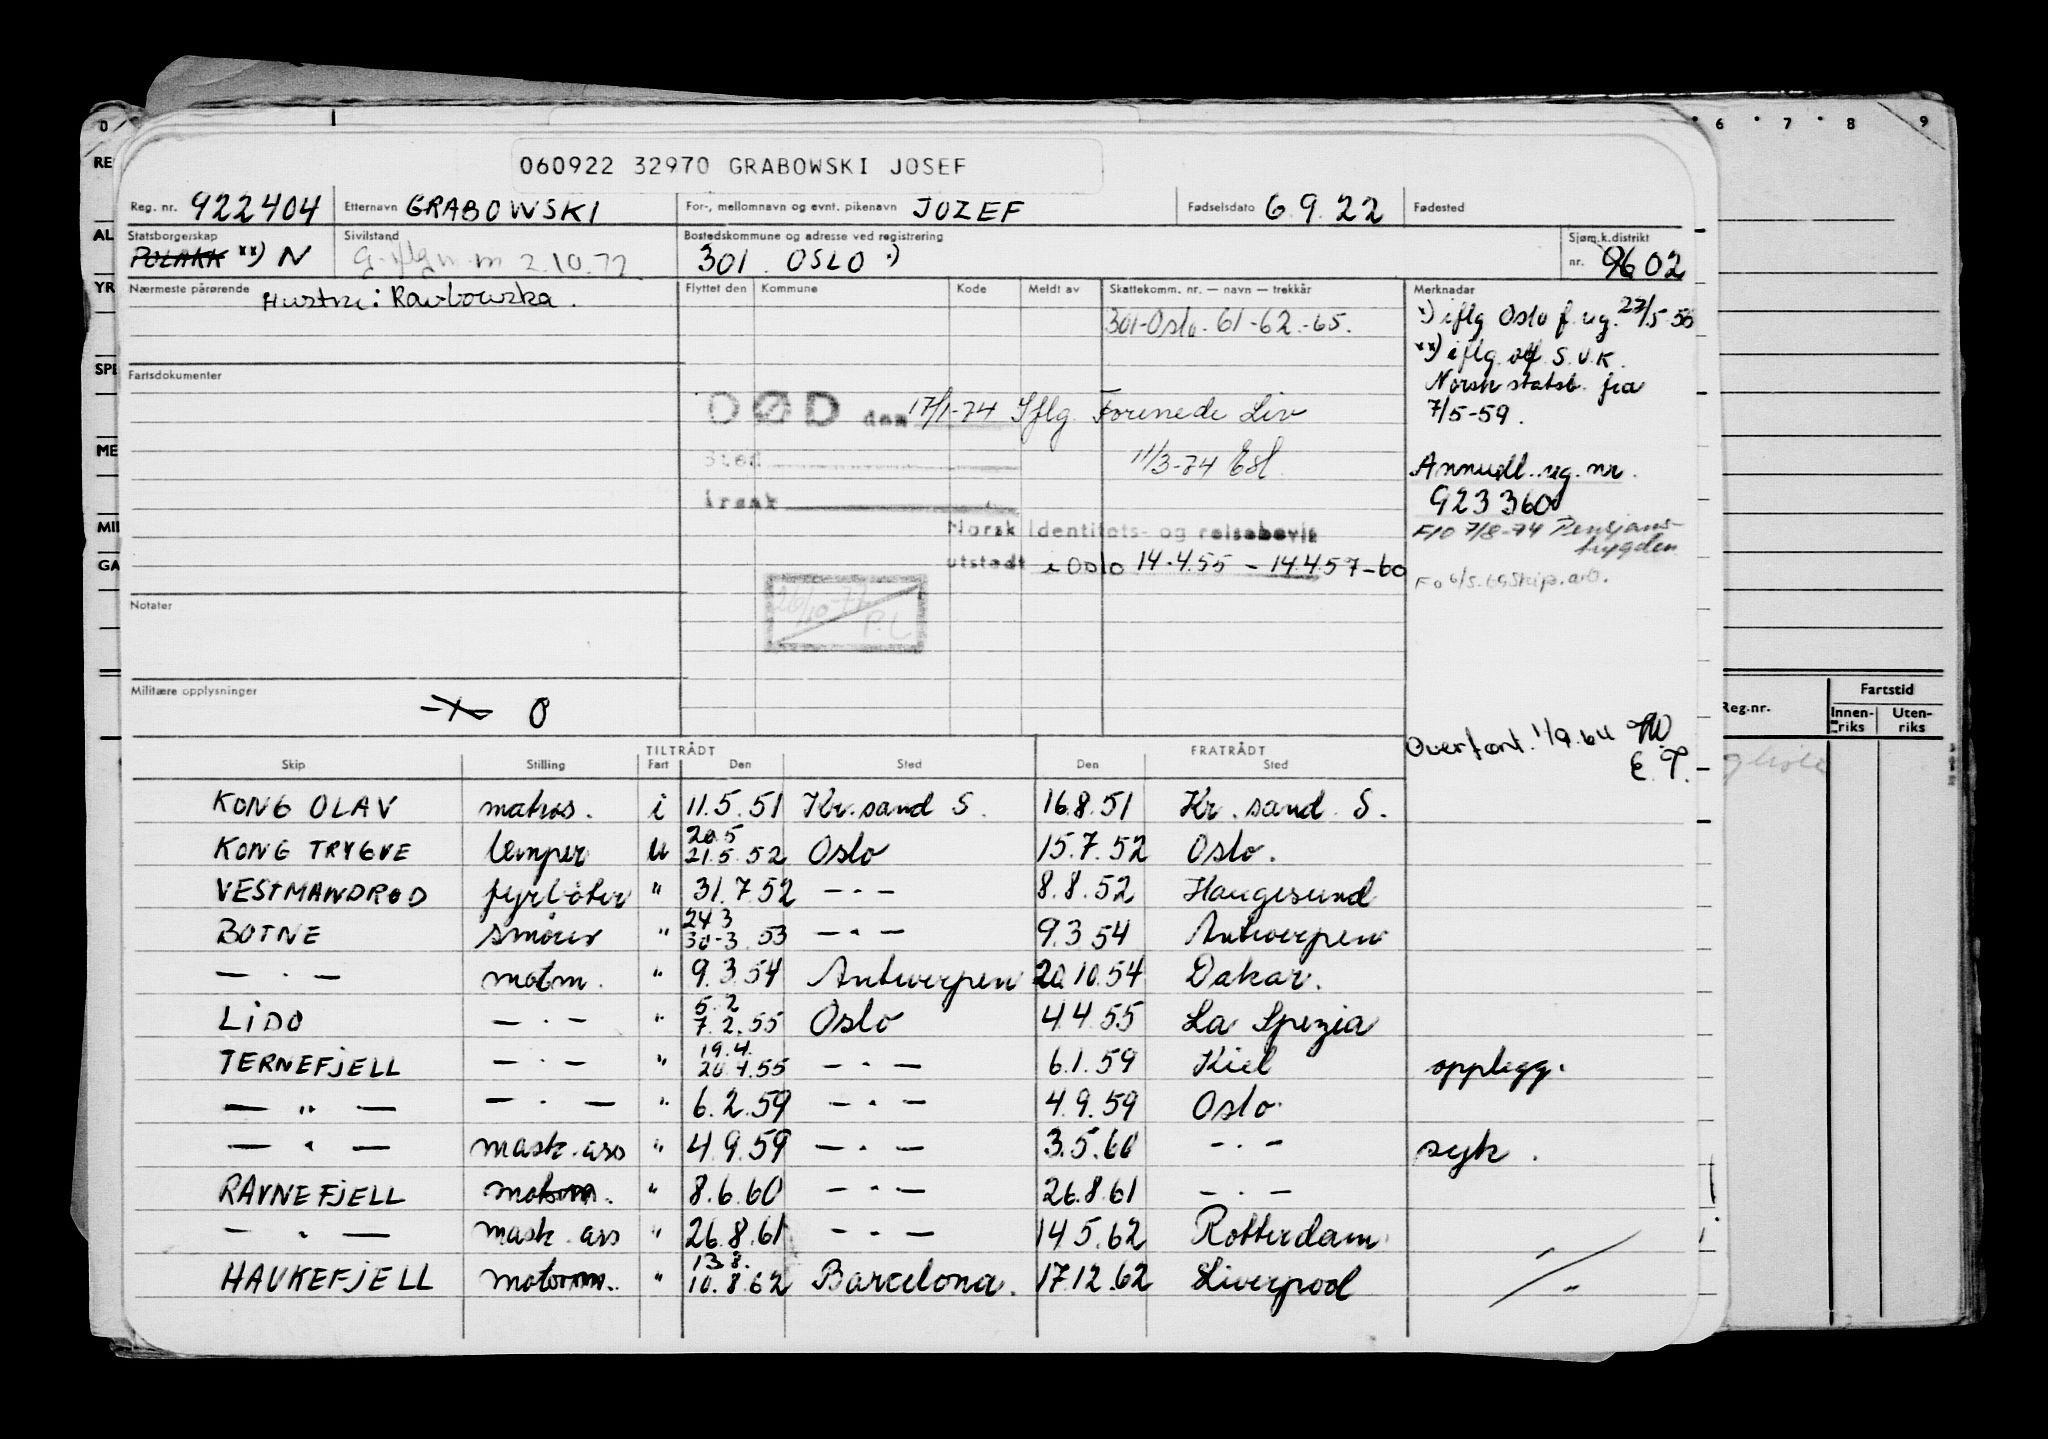 060922 32970 GRABOWSKI JOSEF
Reg. nr. 922404 Etternavn GRABOWSKI For-, mellomnavn og evnt. pikenavn JOZEF Fødselsdato 6.9.22 Fødested
Statsborgerskap POLAKK xx) N Sivilstand 2.10.72 Bostedskommune og adresse ved registrering 301 OSLO Sjøm.k.distrikt nr. 9602
Nærmeste pårørende Hustru: Flyttet den Kommune Kode Meldt av Skattekomm. nr. — navn — trekkår Merknader
301-Oslo. 61-62-65.
x) iflg Oslo f.reg. 23/5-56
xx) iflg. S.U.K.
Norsk statsb. fra
7/5-59.
Fartsdokumenter
DØD den 17/1-74 Iflg. Forenede Liv
Sted 11/3-74
Årsak
Annull. reg. nr.
923360
F/O 7/8-74 Pensjons-
trygden
Norsk Identitets- og reisebevis
utstedt i Oslo 14.4.55 - 14.4.57-60
26/10-77
P.L
Notater
Militære opplysninger O
Overført. 1/9.64
E.T.
TILTRÅDT FRATRÅDT
Skip Stilling Fart Den Sted Den Sted
KONG OLAV matros. i 11.5.51 Kr.sand S. 16.8.51 Kr.sand S.
KONG TRYGVE lemper u 20.5 21.5.52 Oslo 15.7.52 Oslo.
VESTMANDRØD fyrbøter " 31.7.52 — · — 8.8.52 Haugesund
BOTNE smører " 24.3 30-3.53 — · — 9.3.54 Antwerpen
— · — motm. " 9.3.54 Antwerpen 20.10.54 Dakar.
LIDO — · — " 5.2 7.2.55 Oslo 4.4.55 La Spezia
TERNEFJELL — · — " 19.4. 20.4.55 — · — 6.1.59 Kiel opplegg.
— " — — · — " 6.2.59 — · — 4.9.59 Oslo
— " — mask.ass " 4.9.59 — · — 3.5.60 — · — syk.
RAVNEFJELL motorm. " 8.6.60 — · — 26.8.61 — · —
— " — mask.ass " 26.8.61 — · — 14.5.62 Rotterdam
HAUKEFJELL motorm. " 13.8. 10.8.62 Barcelona. 17.12.62 Liverpool
6 7 8 9
Reg.nr. Fartstid
Innenriks Utenriks